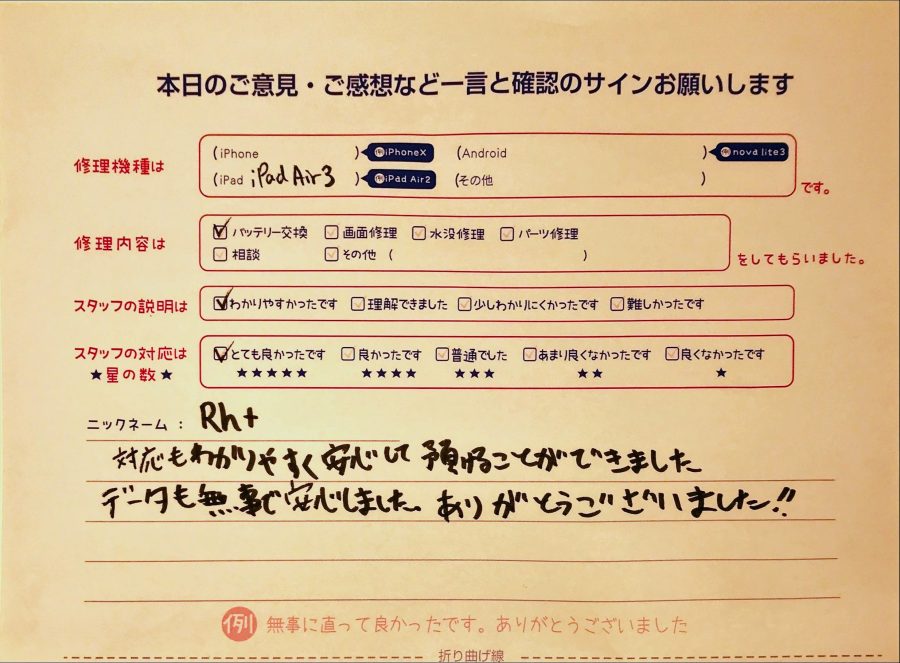 本日のご意見・ご感想など一言と確認のサインお願いします
修理機種は (iPhone ) 例 iPhoneX (Android ) 例 nova lite3
(iPad iPad Air3 ) 例 iPad Air2 (その他 ) です。
修理内容は バッテリー交換 画面修理 水没修理 パーツ修理
相談 その他 ( ) をしてもらいました。
スタッフの説明は わかりやすかったです 理解できました 少しわかりにくかったです 難しかったです
スタッフの対応は とても良かったです 良かったです 普通でした あまり良くなかったです 良くなかったです
★星の数★ ★★★★★ ★★★★ ★★★ ★★ ★
ニックネーム : Rh+
対応もわかりやすく安心して預けることができました
データも無事で安心しました。ありがとうございました!!
例 無事に直って良かったです。ありがとうございました
折り曲げ線